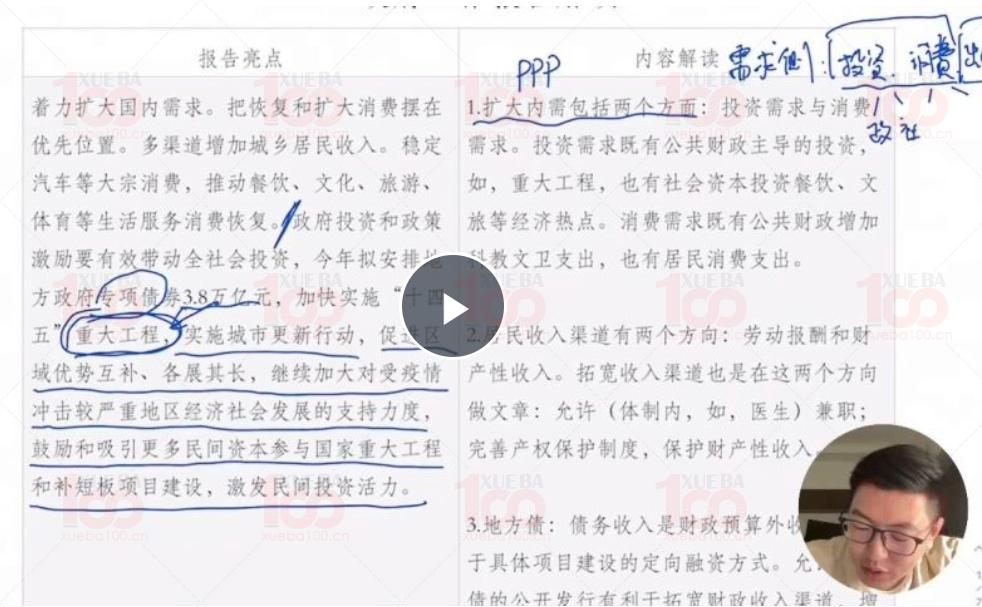 报告亮点
着力扩大国内需求。把恢复和扩大消费摆在
优先位置。多渠道增加城乡居民收入。稳定
汽车等大宗消费，推动餐饮、文化、旅游、
体育等生活服务消费恢复。政府投资和政策
激励要有效带动全社会投资，今年拟安排地
方政府专项债券3.8万亿元，加快实施“十四
五”重大工程，实施城市更新行动，促进区
域优势互补、各展其长，继续加大对受疫情
冲击较严重地区经济社会发展的支持力度，
鼓励和吸引更多民间资本参与国家重大工程
和补短板项目建设，激发民间投资活力。
PPP
内容解读
需求侧：投资、消费
政 社
1.扩大内需包括两个方面：投资需求与消费
需求。投资需求既有公共财政主导的投资，
如，重大工程，也有社会资本投资餐饮、文
旅等经济热点。消费需求既有公共财政增加
科教文卫支出，也有居民消费支出。
2.居民收入渠道有两个方向：劳动报酬和财
产性收入。拓宽收入渠道也是在这两个方向
做文章：允许（体制内，如，医生）兼职；
完善产权保护制度，保护财产性收入
3.地方债：债务收入是财政预算外收
于具体项目建设的定向融资方式。允
债的公开发行有利于拓宽财政收入渠道，增
XUEBA
100
xueba100.cn